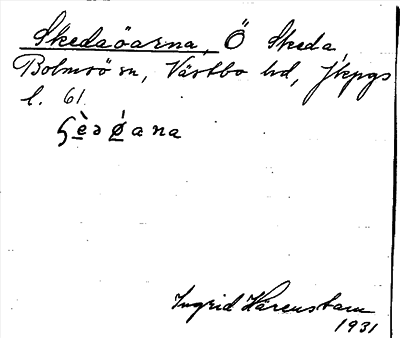 Skedaöarna, Ö Skeda,
Bolmsö sn, Västbo hd, Jkpgs
l. 61
ɧè̱ə ǿ̱ana
Ingrid Härenstam
1931